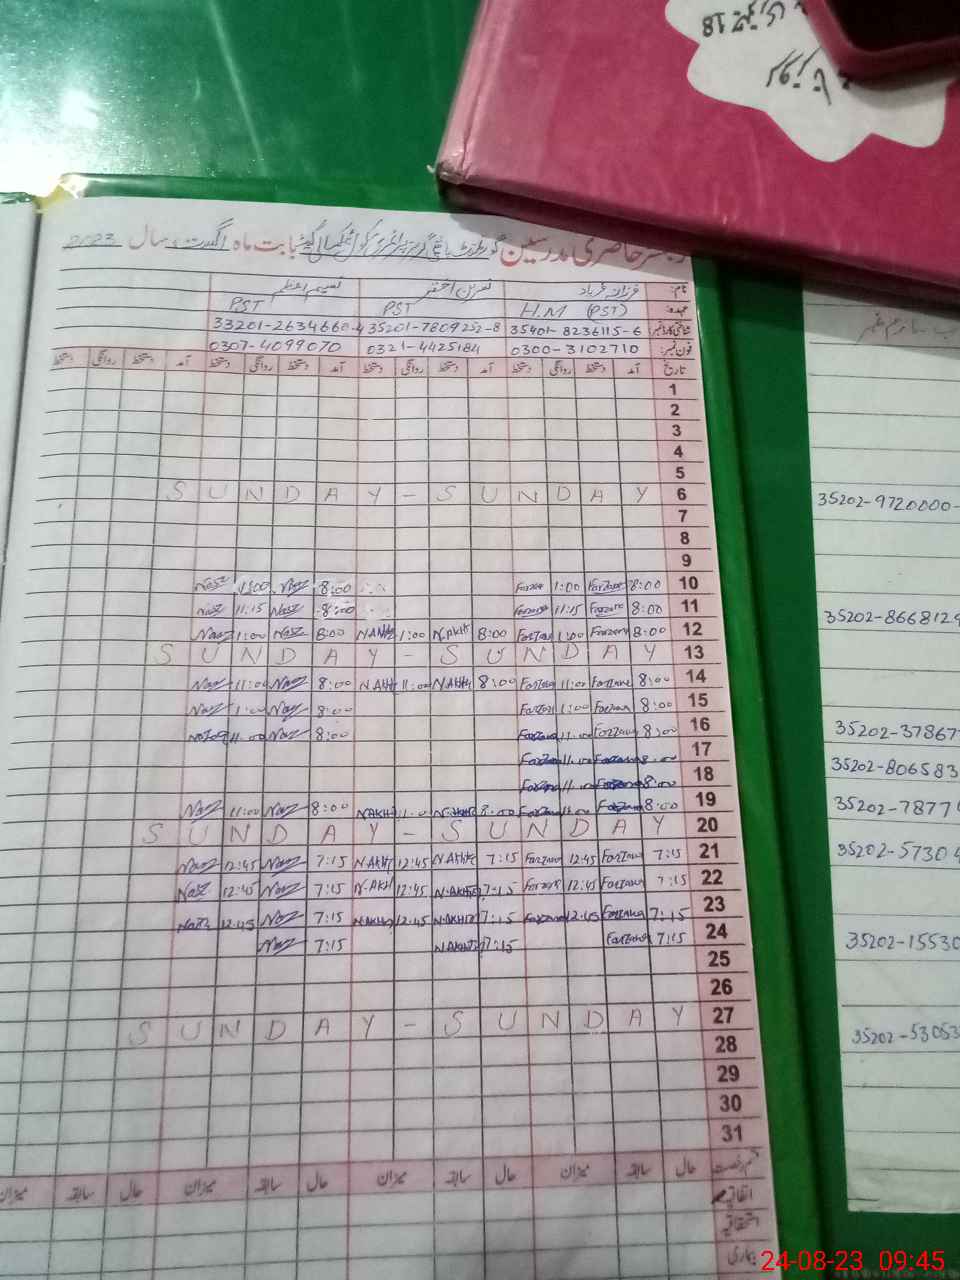 رجسٹر حاضری مدرسین گورنمنٹ گرلز پرائمری سکول بابت ماہ اگست سال 2023
نام: فرزانہ نسرین اختر نسیم اعظم
عہدہ: H.M (PST) PST PST
شناختی کارڈ نمبر 35401-8236115-6 35201-7809252-8 33201-2634660-4
فون نمبر: 0300-3102710 0321-4425184 0307-4099070
تاریخ آمد دستخط روانگی دستخط آمد دستخط روانگی دستخط آمد دستخط روانگی دستخط آمد دستخط روانگی دستخط
1
2
3
4
5
SUNDAY - SUNDAY 6
7
8
9
Naz 1:00 Naz 8:00 Farzana 1:00 Farzana 8:00 10
Naz 11:15 Naz 8:00 Farzana 11:15 Farzana 8:00 11
Naz 1:00 Naz 8:00 NAKHT 1:00 N.AKHT 8:00 Farzana 1:00 Farzana 8:00 12
SUNDAY - SUNDAY 13
Naz 11:00 Naz 8:00 NAKHT 11:00 NAKHT 8:00 Farzana 11:00 Farzana 8:00 14
Naz 1:00 Naz 8:00 Farzana 1:00 Farzana 8:00 15
11:00 Naz 8:00 Farzana 11:00 Farzana 8:00 16
Farzana 11:00 Farzana 8:00 17
Farzana 11:00 Farzana 8:00 18
Naz 11:00 Naz 8:00 NAKHT 11:00 NAKHT 8:00 Farzana 11:00 Farzana 8:00 19
SUNDAY - SUNDAY 20
Naz 12:45 Naz 7:15 NAKHT 12:45 NAKHT 7:15 Farzana 12:45 Farzana 7:15 21
Naz 12:45 Naz 7:15 N.AKHT 12:45 N.AKHT 7:15 Farzana 12:45 Farzana 7:15 22
Naz 12:45 Naz 7:15 NAKHT 12:45 NAKHT 7:15 Farzana 12:45 Farzana 7:15 23
Naz 7:15 NAKHT 7:15 Farzana 7:15 24
25
26
SUNDAY - SUNDAY 27
28
29
30
31
قسم رخصت حال سابقہ میزان حال سابقہ میزان حال سابقہ میزان حال سابقہ میزان
اتفاقیہ
استحقاقیہ
بیماری
35202-9720000-
35202-8668129
35202-37867
35202-806583
35202-7877
35202-57304
35202-15530
35202-53053
24-08-23 09:45